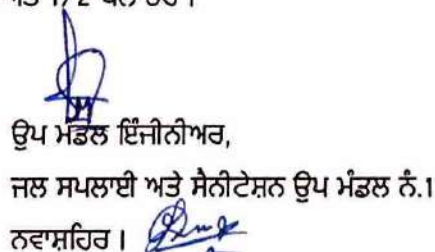 ਉਪ ਮੰਡਲ ਇੰਜੀਨੀਅਰ,
ਜਲ ਸਪਲਾਈ ਅਤੇ ਸੈਨੀਟੇਸ਼ਨ ਉਪ ਮੰਡਲ ਨੰ.1
ਨਵਾਸ਼ਹਿਰ।